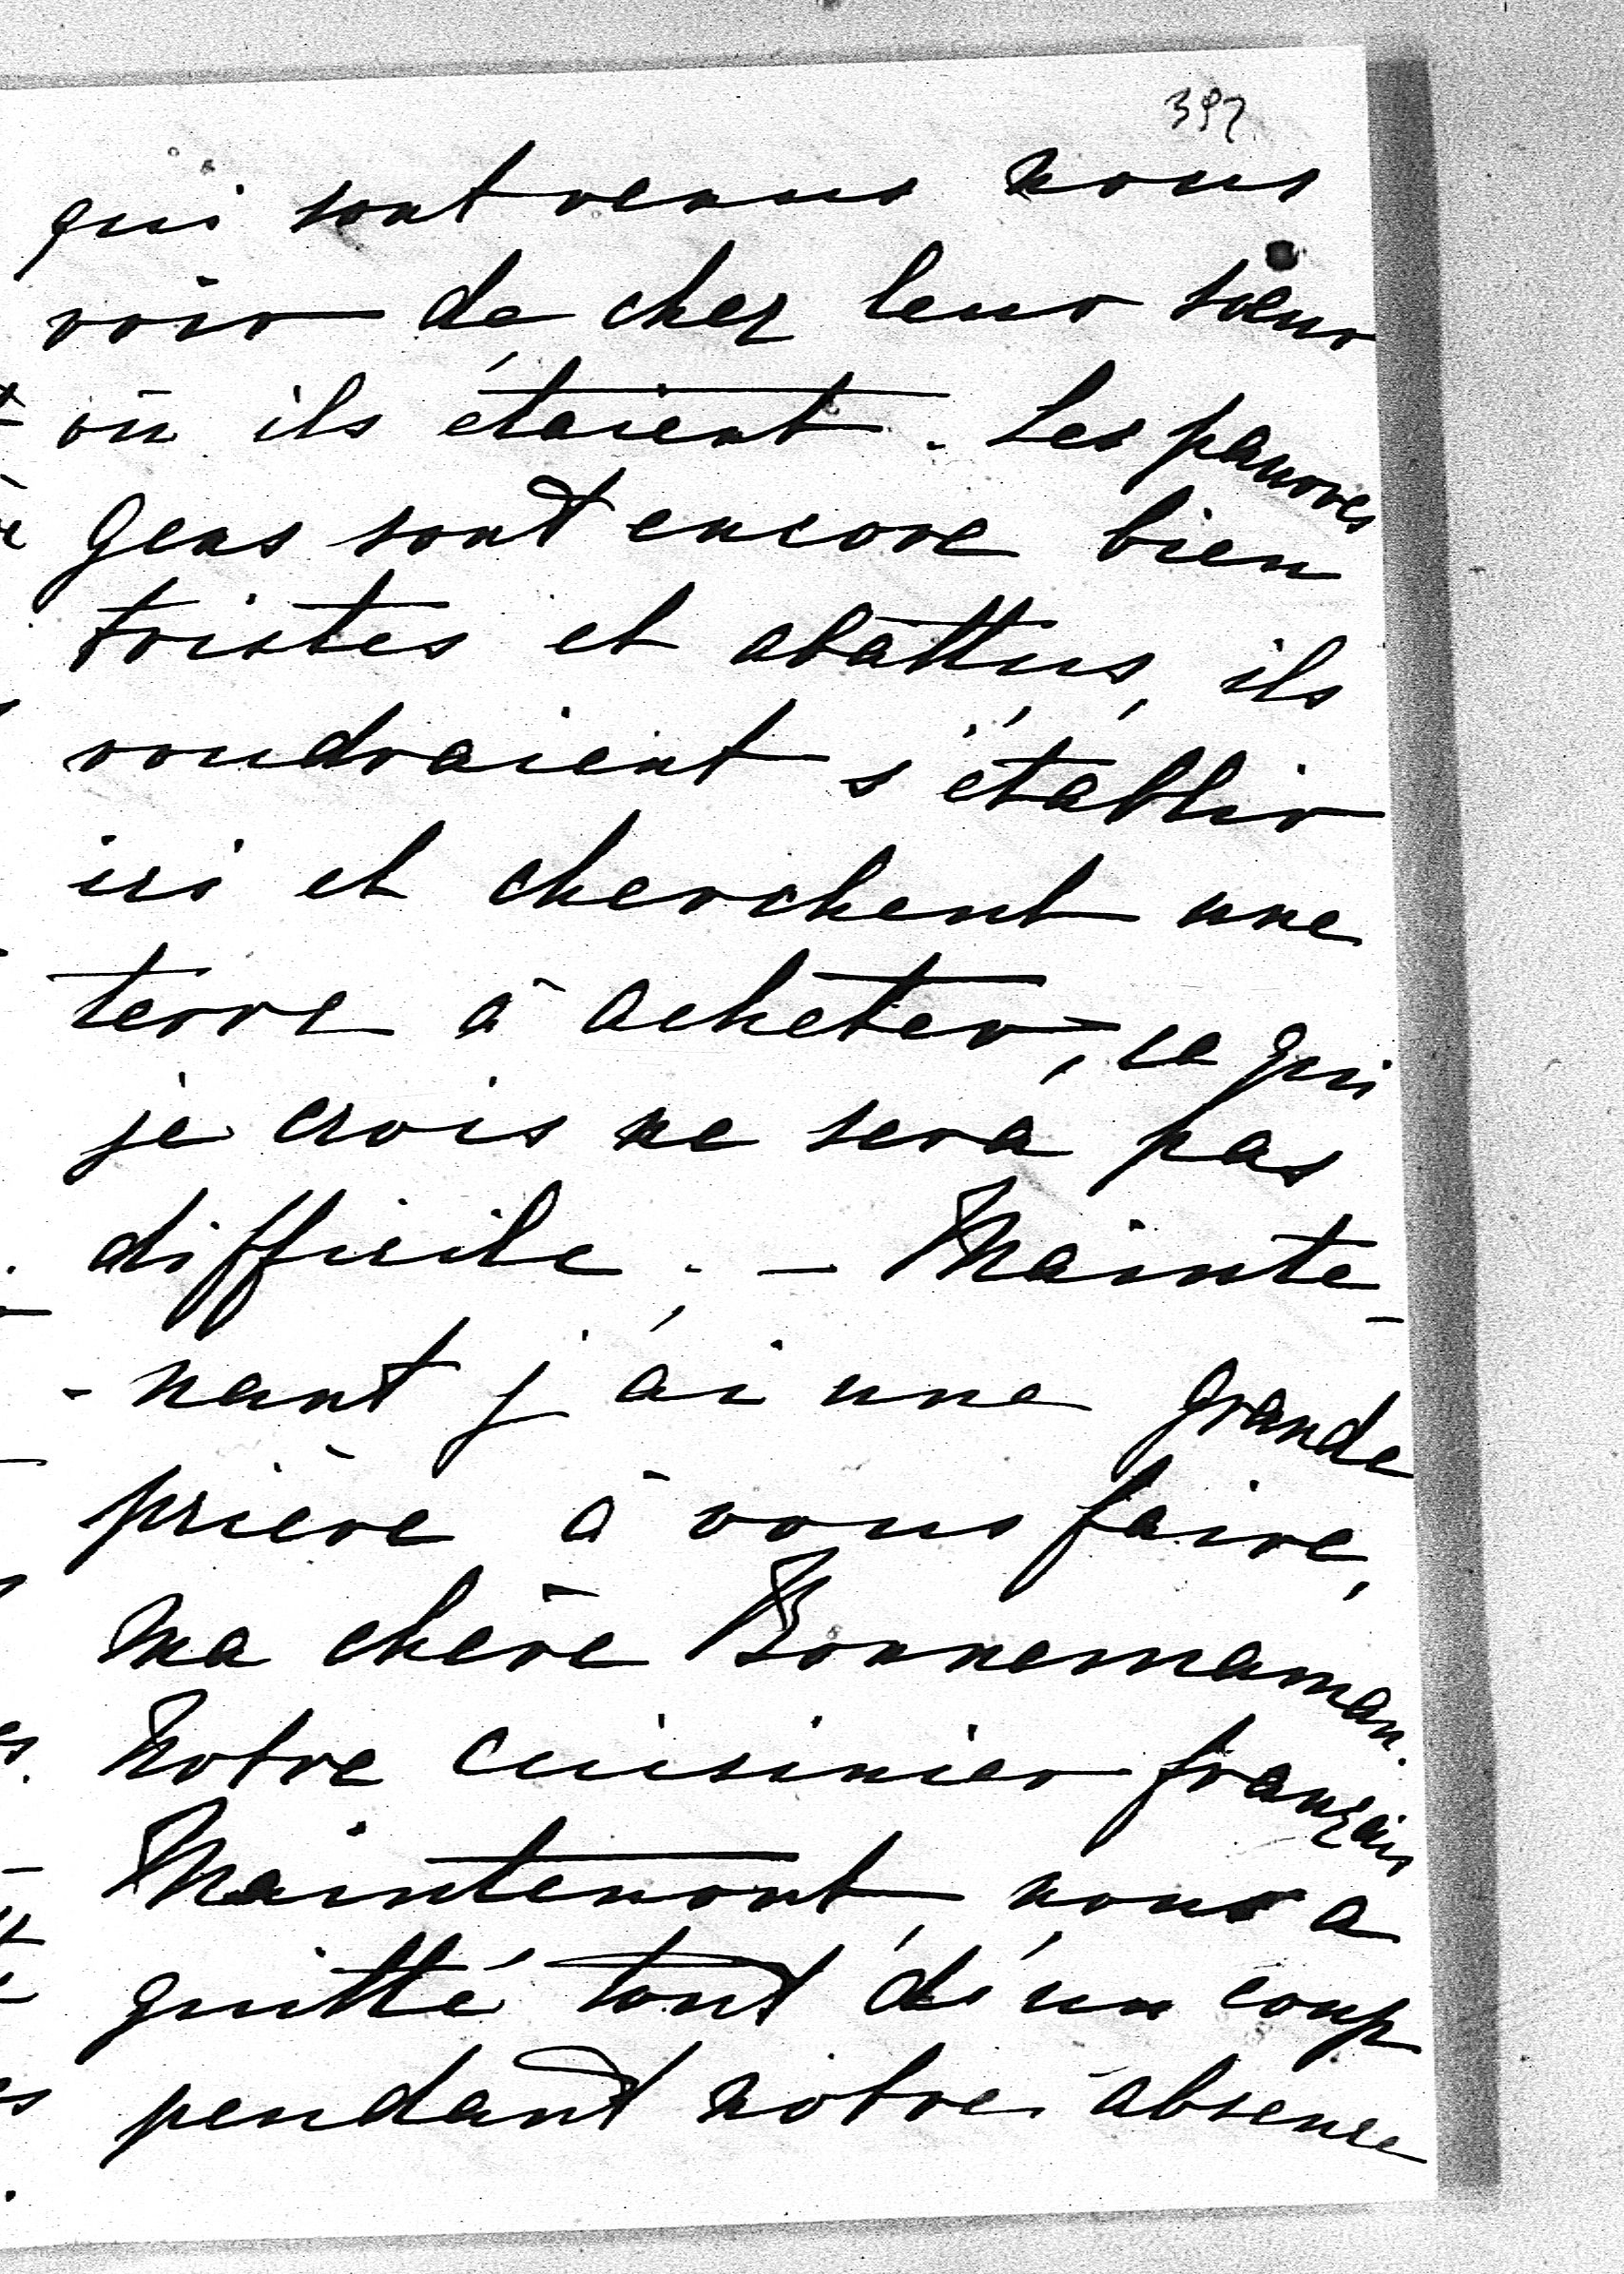 397
qui sont venus nous
voir de chez leur sœur
où ils étaient. Les pauvres
gens sont encore bien
tristes et abattus, ils
voudraient s'établir
ici et cherchent une
terre à acheter, ce qui
je crois ne sera pas
difficile. – Mainte-
-nant j'ai une grande
prière à vous faire,
ma chère Bonnemaman.
Notre cuisinier français
Maintenont, nous a
quitté tout d'un coup
pendant notre absence